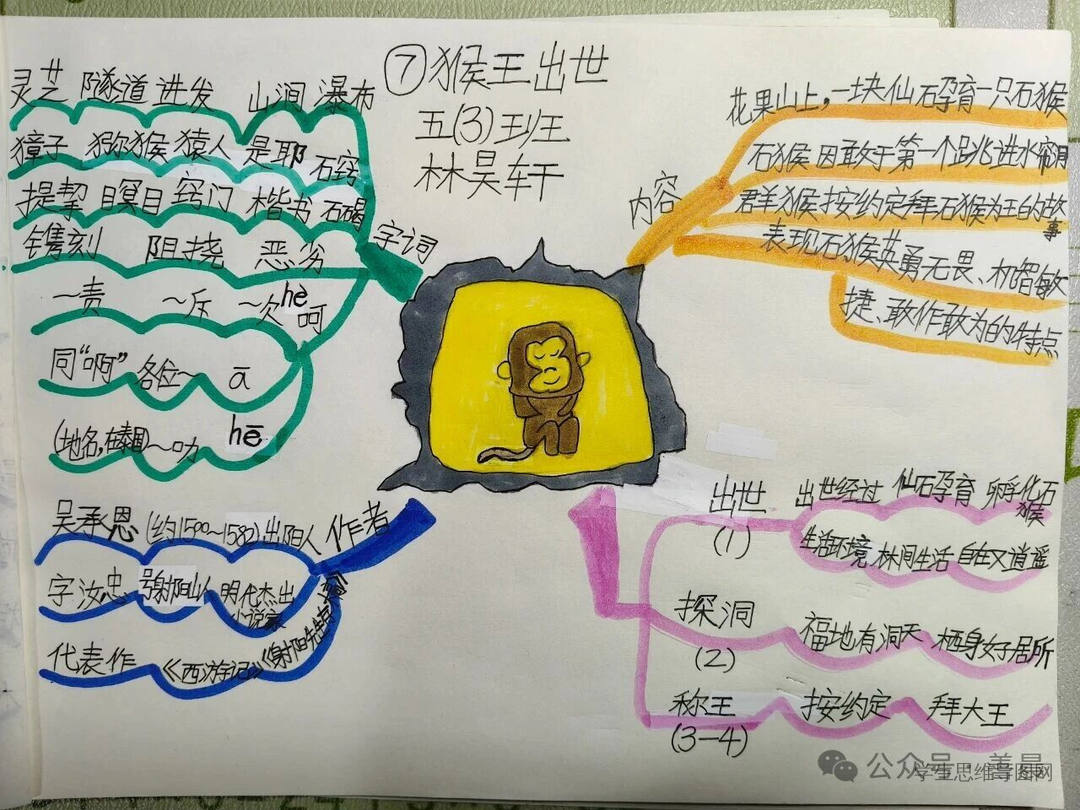 ⑦猴王出世
五(3)班
林昊轩
字词
灵芝 隧道 进发 山涧 瀑布
獐子 猕猴 猿人 是耶 石窍
提挈 瞑目 窍门 楷书 石碣
镌刻 阻挠 恶劣
～责 ～斥 ～欠 hē 呵
同“啊” 各位～ ā
(地名,在泰国)～叻 hē
作者
吴承恩 (约1500～1582) 出阳人
字汝忠 号射阳山人 明代杰出小说家
代表作 《西游记》
内容
花果山上,一块仙石孕育一只石猴
石猴因敢于第一个跳进水帘洞
群猴按约定拜石猴为王的故事
表现石猴英勇无畏、机智敏
捷、敢作敢为的特点
出世
(1)
出世经过 仙石孕育 卵孵化石猴
生活环境 林间生活 自在又逍遥
探洞
(2)
福地有洞天 栖身好居所
称王
(3-4)
按约定 拜大王
公众号
学生思维导图网